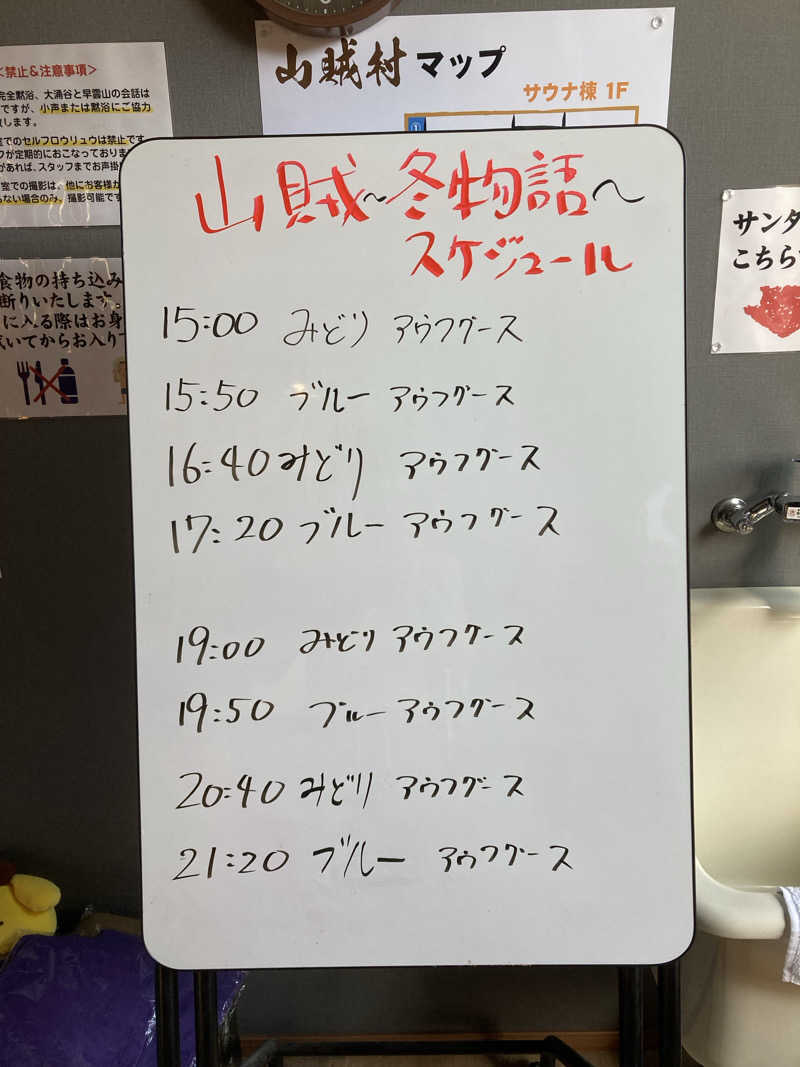 <禁止&注意事項>
完全黙浴、大涌谷と早雲山の会話は
ですが、小声または黙浴にご協力
します。
室でのセルフロウリュウは禁止です
フが定期的におこなっておりま
があれば、スタッフまでお声掛
室での撮影は、他にお客様が
ない場合のみ、撮影可能です
山賊村 マップ
サウナ棟 1F
食物の持ち込み
断りいたします。
に入る際はお身
拭いてからお入り下
サンタ
こちら
山賊~冬物語~
スケジュール
15:00 みどり アウフグース
15:50 ブルー アウフグース
16:40 みどり アウフグース
17:20 ブルー アウフグース
19:00 みどり アウフグース
19:50 ブルー アウフグース
20:40 みどり アウフグース
21:20 ブルー アウフグース